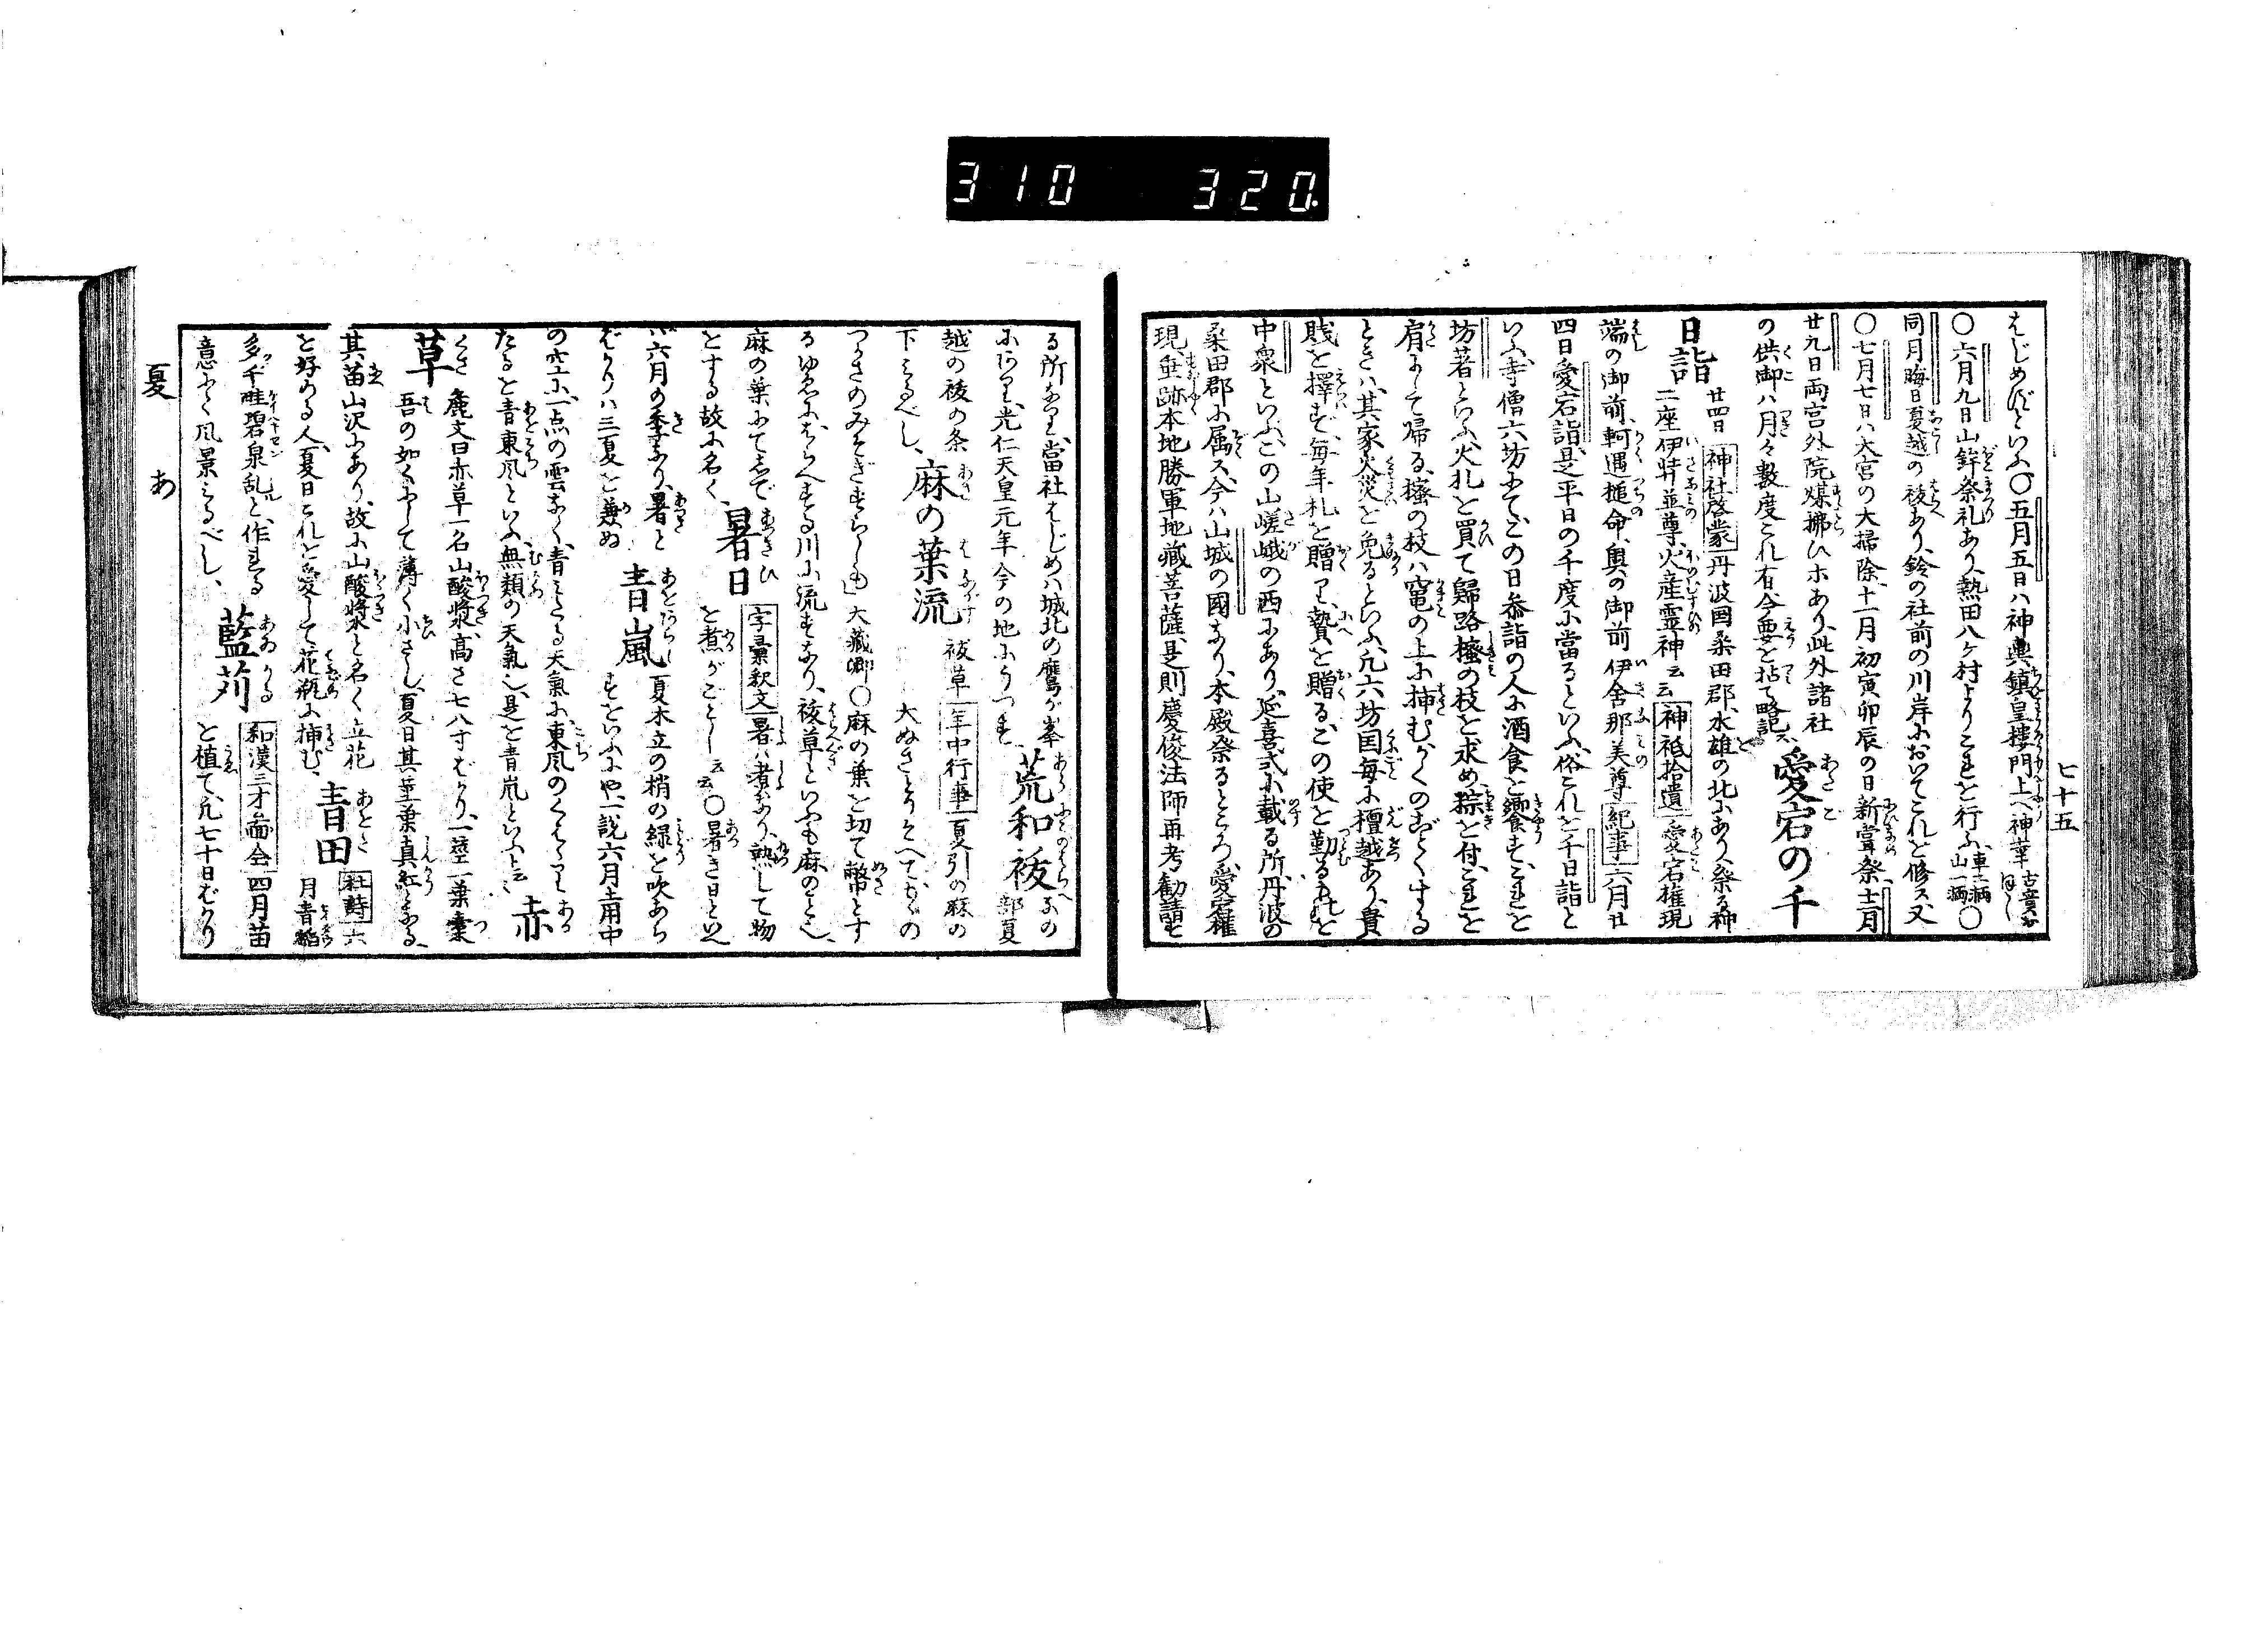 310 320.
七十五
はじめずといふ〇五月五日ハ神輿鎮皇樓門上へ神輦
〇六月九日山鉾祭礼あり、熱田八ケ村よりこれを行ふ、車二輌山一輌〇
同月晦日夏越の祓あり、鈴の社前の川岸においてこれを修ス又
〇七月七日ハ大宮の大掃除、十一月初寅卯辰の日新嘗祭、十二月
廿九日両宮外院煤拂ひホあり、此外諸社
の供御ハ月々数度これ有今要を拈て略記ス
愛宕の千
日詣
廿四日 神社啓蒙 丹波国桑田郡、水雄の北にあり、祭る神
二座伊弉並尊、火産霊神云云 神祇拾遺 愛宕権現
端の御前、軻遇槌命、奥の御前 伊舍那美尊 紀事 六月廿
四日愛宕詣、是平日の千度に當るといふ、俗これを千日詣と
いふ、寺僧六坊にて、この日参詣の人に酒食を饗す、これを
坊著といふ、火札を買て歸路樒の枝を求め粽を付、これを
肩にして帰る、樒の枝ハ竃の上に挿むかくのごとくする
ときハ、其家火災を免るといふ、凡六坊国毎に檀越あり、貴
賎を擇ず、毎年札を贈り、贄を贈る、この使を勤るものを
中衆といふ、この山嵯峨の西にあり、延喜式に載る所、丹波の
桑田郡に属ス、今ハ山城の國なり、本殿祭るところ、愛宕権
現、垂跡本地勝軍地蔵菩薩、是則慶俊法師再考勧請せ
る所なり、當社はじめハ城北の鷹が峯
にあり、光仁天皇元年今の地にうつす、
荒和祓
部夏
越の祓の条
下みるべし、
麻の葉流
祓草 年中行事 夏引の麻の
大ぬさとりそへてかもの
つかさのみそぎすらしも」大藏卿〇麻の葉を切て幣とす
るゆゑにはらへする川に流すなり、祓草といふも麻のこと也、
麻の葉にてしで
とする故に名く、
暑日
字彙釈文 暑ハ煮なり、熱して物
を煮がごとし云云〇暑き日といへ
バ六月の季なり、暑と
ばかりハ三夏を兼ぬ
青嵐
夏木立の梢の緑を吹あら
すをいふにや、一説六月土用中
の空に、一点の雲なく、青みたる天氣に、東風のくはゝり
たるを青東風といふ、無類の天氣也、是を青嵐といふと云云
赤
草
麁文曰赤草一名山酸漿、高さ七八寸ばかり、一莖一葉、葉
吾の如くにして薄く小さし、夏日其莖葉真紅となる、
其苗山沢にあり、故に山酸漿と名く、立花
を好める人、夏日これを愛して花瓶に挿む、
青田
杜詩 六
月青稲
多千畦碧泉乱と、作れる
意にて風景みるべし、
藍苅
和漢三才圖会 四月苗
を植て、凡七十日ばかり
夏 あ